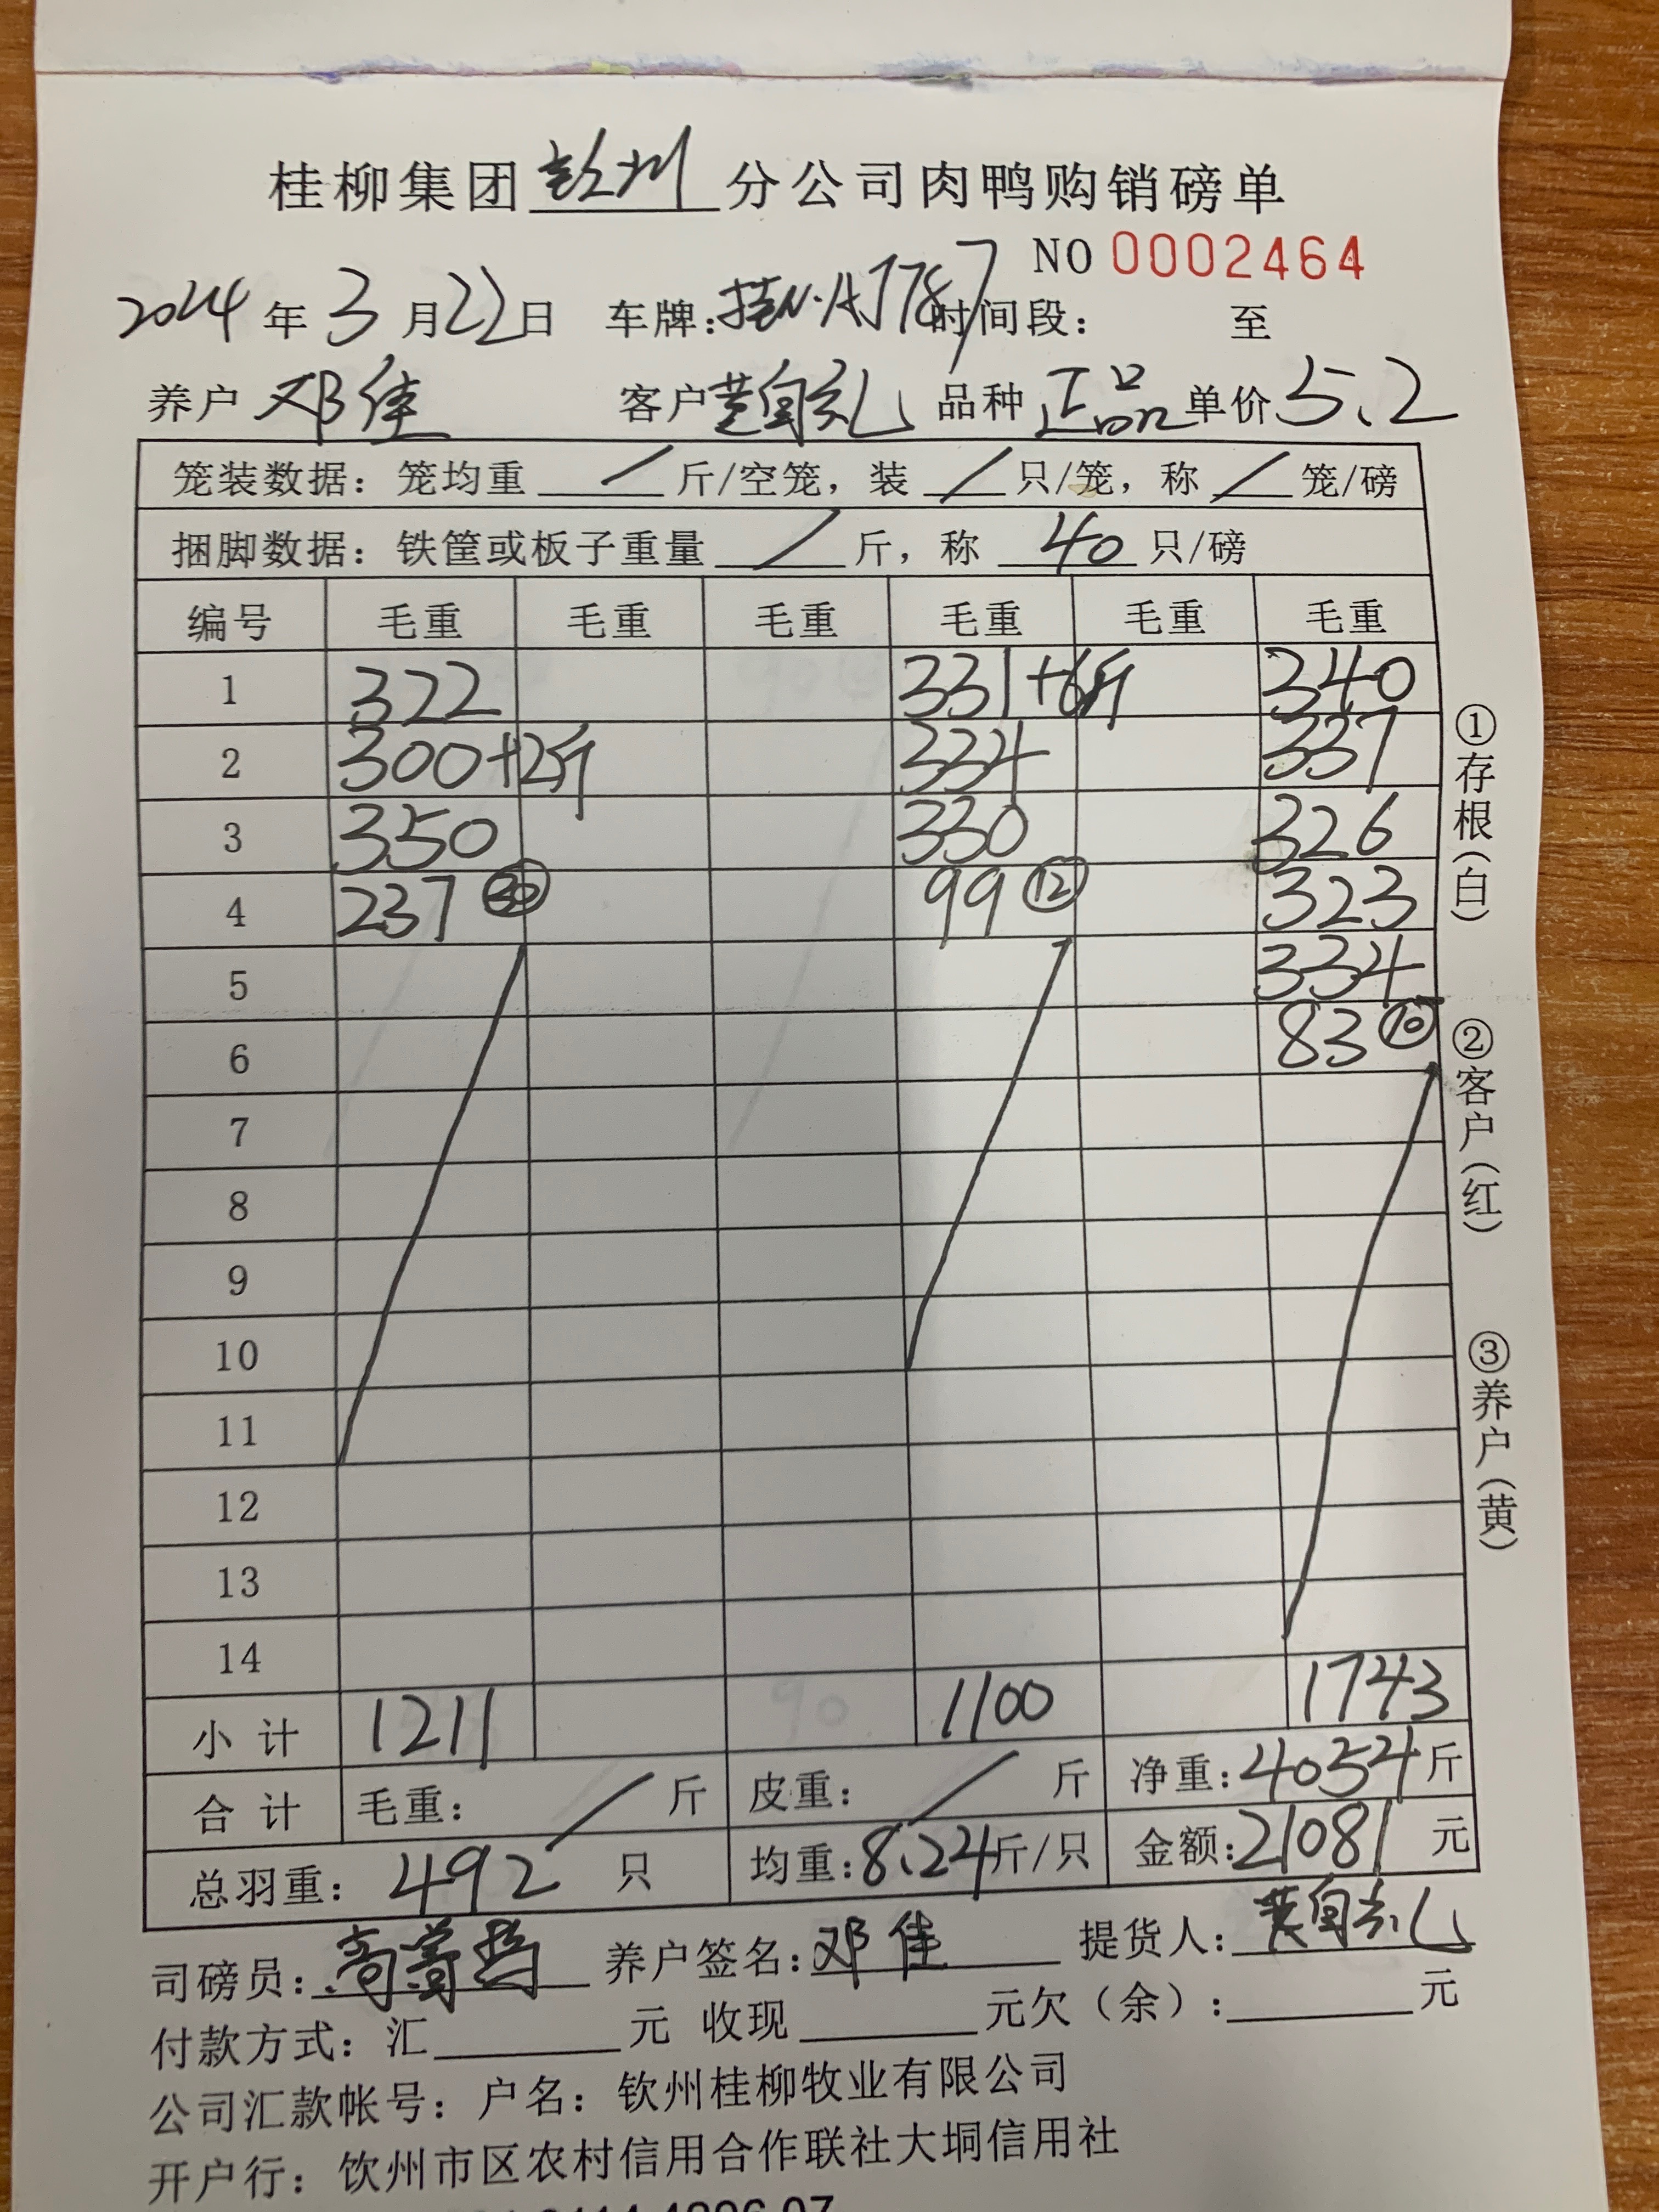 桂柳集团钦州分公司肉鸭购销磅单
NO 0002464
2024年3月22日 车牌:桂N·AJ787 时间段: 至
养户 邓佳 客户 黄自礼 品种 正品 单价 5.2
笼装数据: 笼均重 / 斤/空笼, 装 / 只/笼, 称 / 笼/磅
捆脚数据: 铁筐或板子重量 / 斤, 称 40 只/磅
编号 毛重 毛重 毛重 毛重 毛重 毛重
1 322 331+6斤 340
2 300+2斤 334 337
3 350 330 326
4 237 ㉚ 99 ⑫ 323
5 334
6 83 ⑩
7
8
9
10
11
12
13
14
小计 1211 1100 1743
合计 毛重: / 斤 皮重: / 斤 净重: 4054斤
总羽重: 492 只 均重: 8.24斤/只 金额: 21081 元
司磅员: 养户签名: 邓佳 提货人: 黄自礼
付款方式: 汇 元 收现 元欠(余): 元
公司汇款帐号: 户名: 钦州桂柳牧业有限公司
开户行: 钦州市区农村信用合作联社大垌信用社
①存根(白)
②客户(红)
③养户(黄)